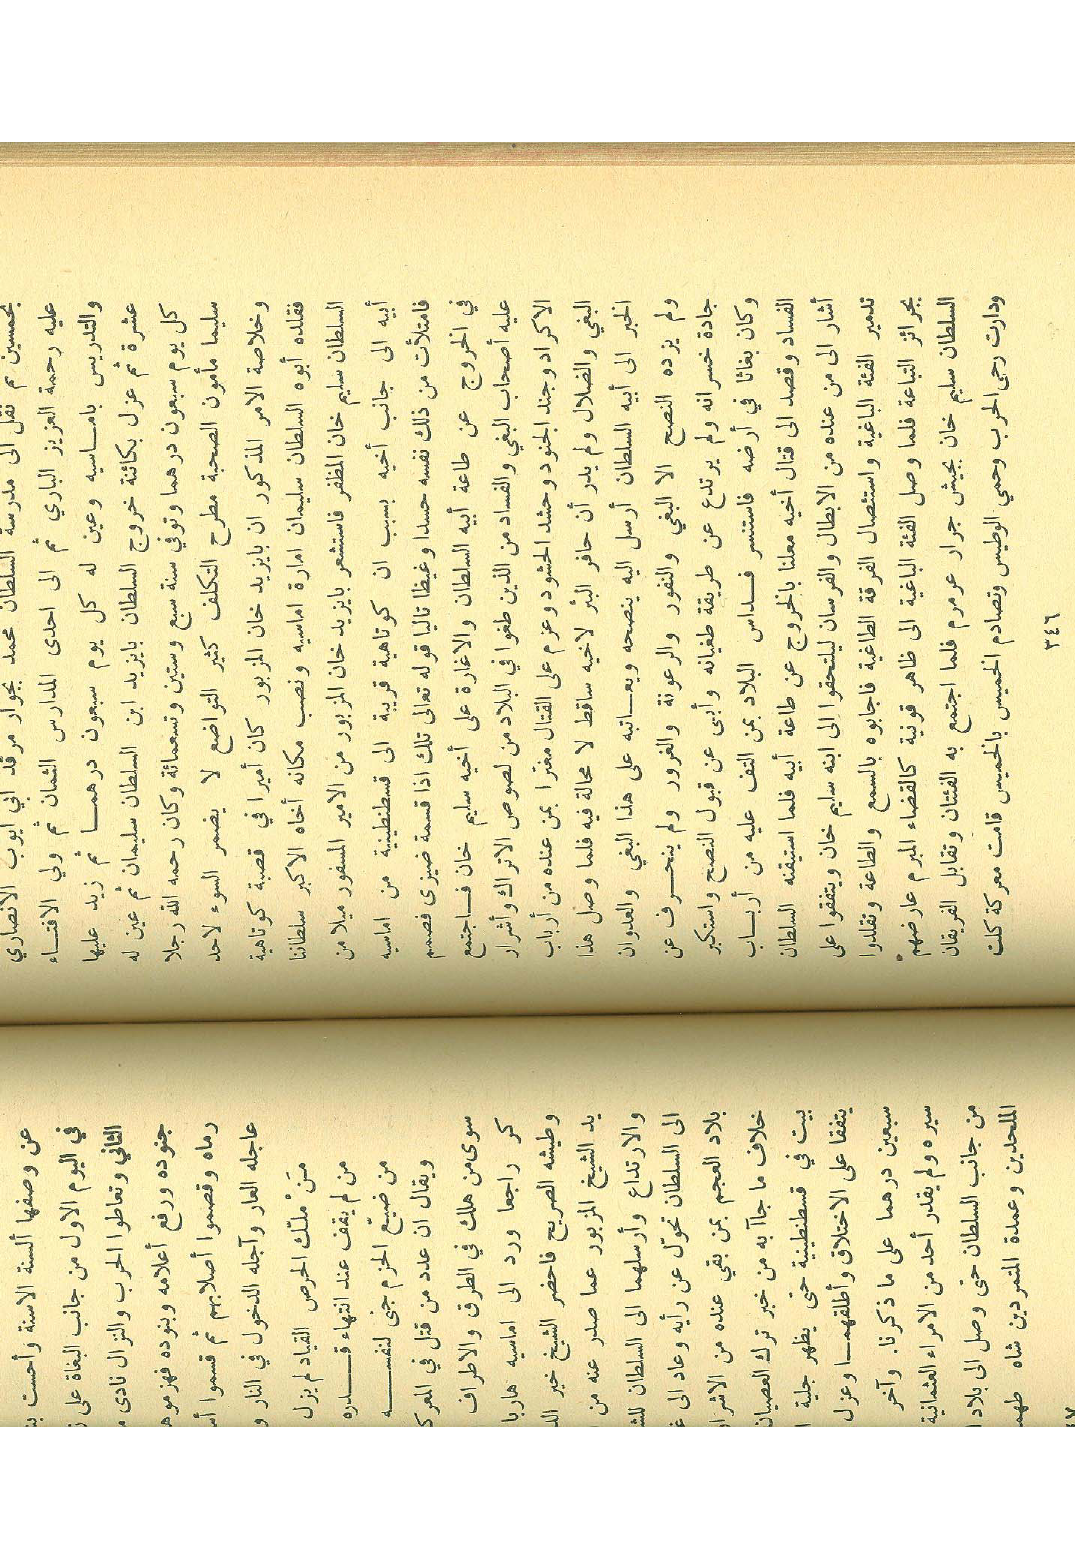 بخمسين ثم نقل الى مدرسة السلطان محمد بجوار مرقد ابي ايوب الانصاري
عليه رحمة العزيز الباري ثم الى احدى المدارس الثمان ثم ولي الافتـاء
والتدريس بامـاسيه وعين له كل يوم سبعون درهمـا ثم زيد عليها
عشرة ثم عزل بكائنة خروج السلطان بايزيد ابن السلطان سليمان ثم عين له
كل يوم سبعون درهما وتوفي سنة سبع وستين وتسعمائة وكان رحمه الله رجلا
سليما مأمون الصحبة مطرح التكلف كثير التواضع لا يضمر السوء لاحد
وخلاصة الامر المذكور ان بايزيد خان المزبور كان أميرا في قصبة كوتاهية
فقلده أبوه السلطان سليمان امارة اماسيه ونصب مكانه أخاه الاكبر سلطاننا
السلطان سليم خان المظفر فاستشعر بايزيد خان المزبور من الامير المسفور ميلا من
أبيه الى جانب أخيه بسبب ان كوتاهية قريبة الى قسطنطينية من اماسيه
فامتلأت من ذلك نفسه حسدا وغيظا تاليا قوله تعالى تلك اذا قسمة ضيزى فصمم
في الخروج عن طاعة أبيه السلطان والاغارة على أخيه سليم خان فـاجتمع
عليه أصحاب البغي والفساد من الذين طغوا في البلاد من لصوص الاتراك وأشرار
الاكراد وجند الجنود وحشد الحشود وعزم على القتال مغترا بمن عنده من أرباب
البغي والضلال ولم يدر أن حافر البئر لاخيه ساقط لا محالة فيه فلما وصل هذا
الخبر الى أبيه السلطان أرسل اليه ينصحه ويعـاتبه على هذا البغي والعدوان
ولم يزده النصح الا البغي والنفور والرعونة والغرور ولم ينحـرف عن
جادة خسرانه ولم يرتدع عن طريقة طغيانه وأبى عن قبول النصح واستكبر
وكان بغاثا في أرضه فاستنسر فـداس البلاد بمن التف عليه من أربـاب
الفساد وقصد الى قتال أخيه معلنا بالخروج عن طاعة أبيه فلما استيقنه السلطان
أشار الى من عنده من الابطال والفرسان ليلتحقوا الى ابنه سليم خان ويتفقوا على
تدمير الفئة الباغية واستئصال الفرقة الطاغية فاجابوه بالسمع والطاعة وتقلدوا
بجرائز التباعة فلما وصل الفئة الباغية الى ظاهر قونية كالقضاء المبرم عارضهم
السلطان سليم خان بجيش جرار عرمرم فلما اجتمع به الفئتان وتقابل الفريقان
ودارت رحى الحرب وحمي الوطيس وتصادم الخميس بالخميس قامت معركة كلت
٣٤٦
عن وصفها ألسنة الاسنة وأحست
في اليوم الاول من جانب البغاة على
الثاني وتعاطوا الحرب والنزال نادى
جنوده ورفع أعلامه وبنوده فهزموه
رماه وقصموا أصلابهم ثم قسموا
عاجله العار وآجله الدخول في النار
مَنْ ملّك الحرص القياد لم يزل
من لم يقف عند انتهاء قـدره
من ضيّع الحزم جنى لنفسـه
ويقال ان عدد من قتل في
سوى من هلك في الطرق والاطراف
كر راجعا ورد الى اماسيه هاربا
وطيشه الصريح فاحضر الشيخ خير
يد الشيخ المزبور عما صدر عنه من
والارتداع وأرسلهما الى السلطان
الى السلطان تحوّل عن رأيه وعاد الى
بلاد العجم بمن بقي عنده من
خلاف ما جاآ به من خبر ترك العصيان
بيت في قسطنطينية حتى يظهر جلية
يتفقا على الاختلاق وأطلقهمـا وعزل
سبعين درهما على ما ذكرنا. وآخر
سيره ولم يقدر أحد من الامراء العثمانية
من جانب السلطان حتى وصل الى بلاد
الملحدين وعمدة المتمردين شاه